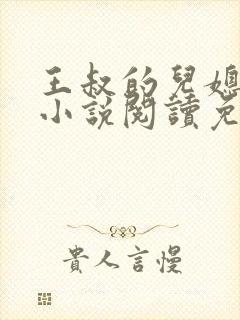 王叔的兒媳
小説閱讀免
貴人言慢